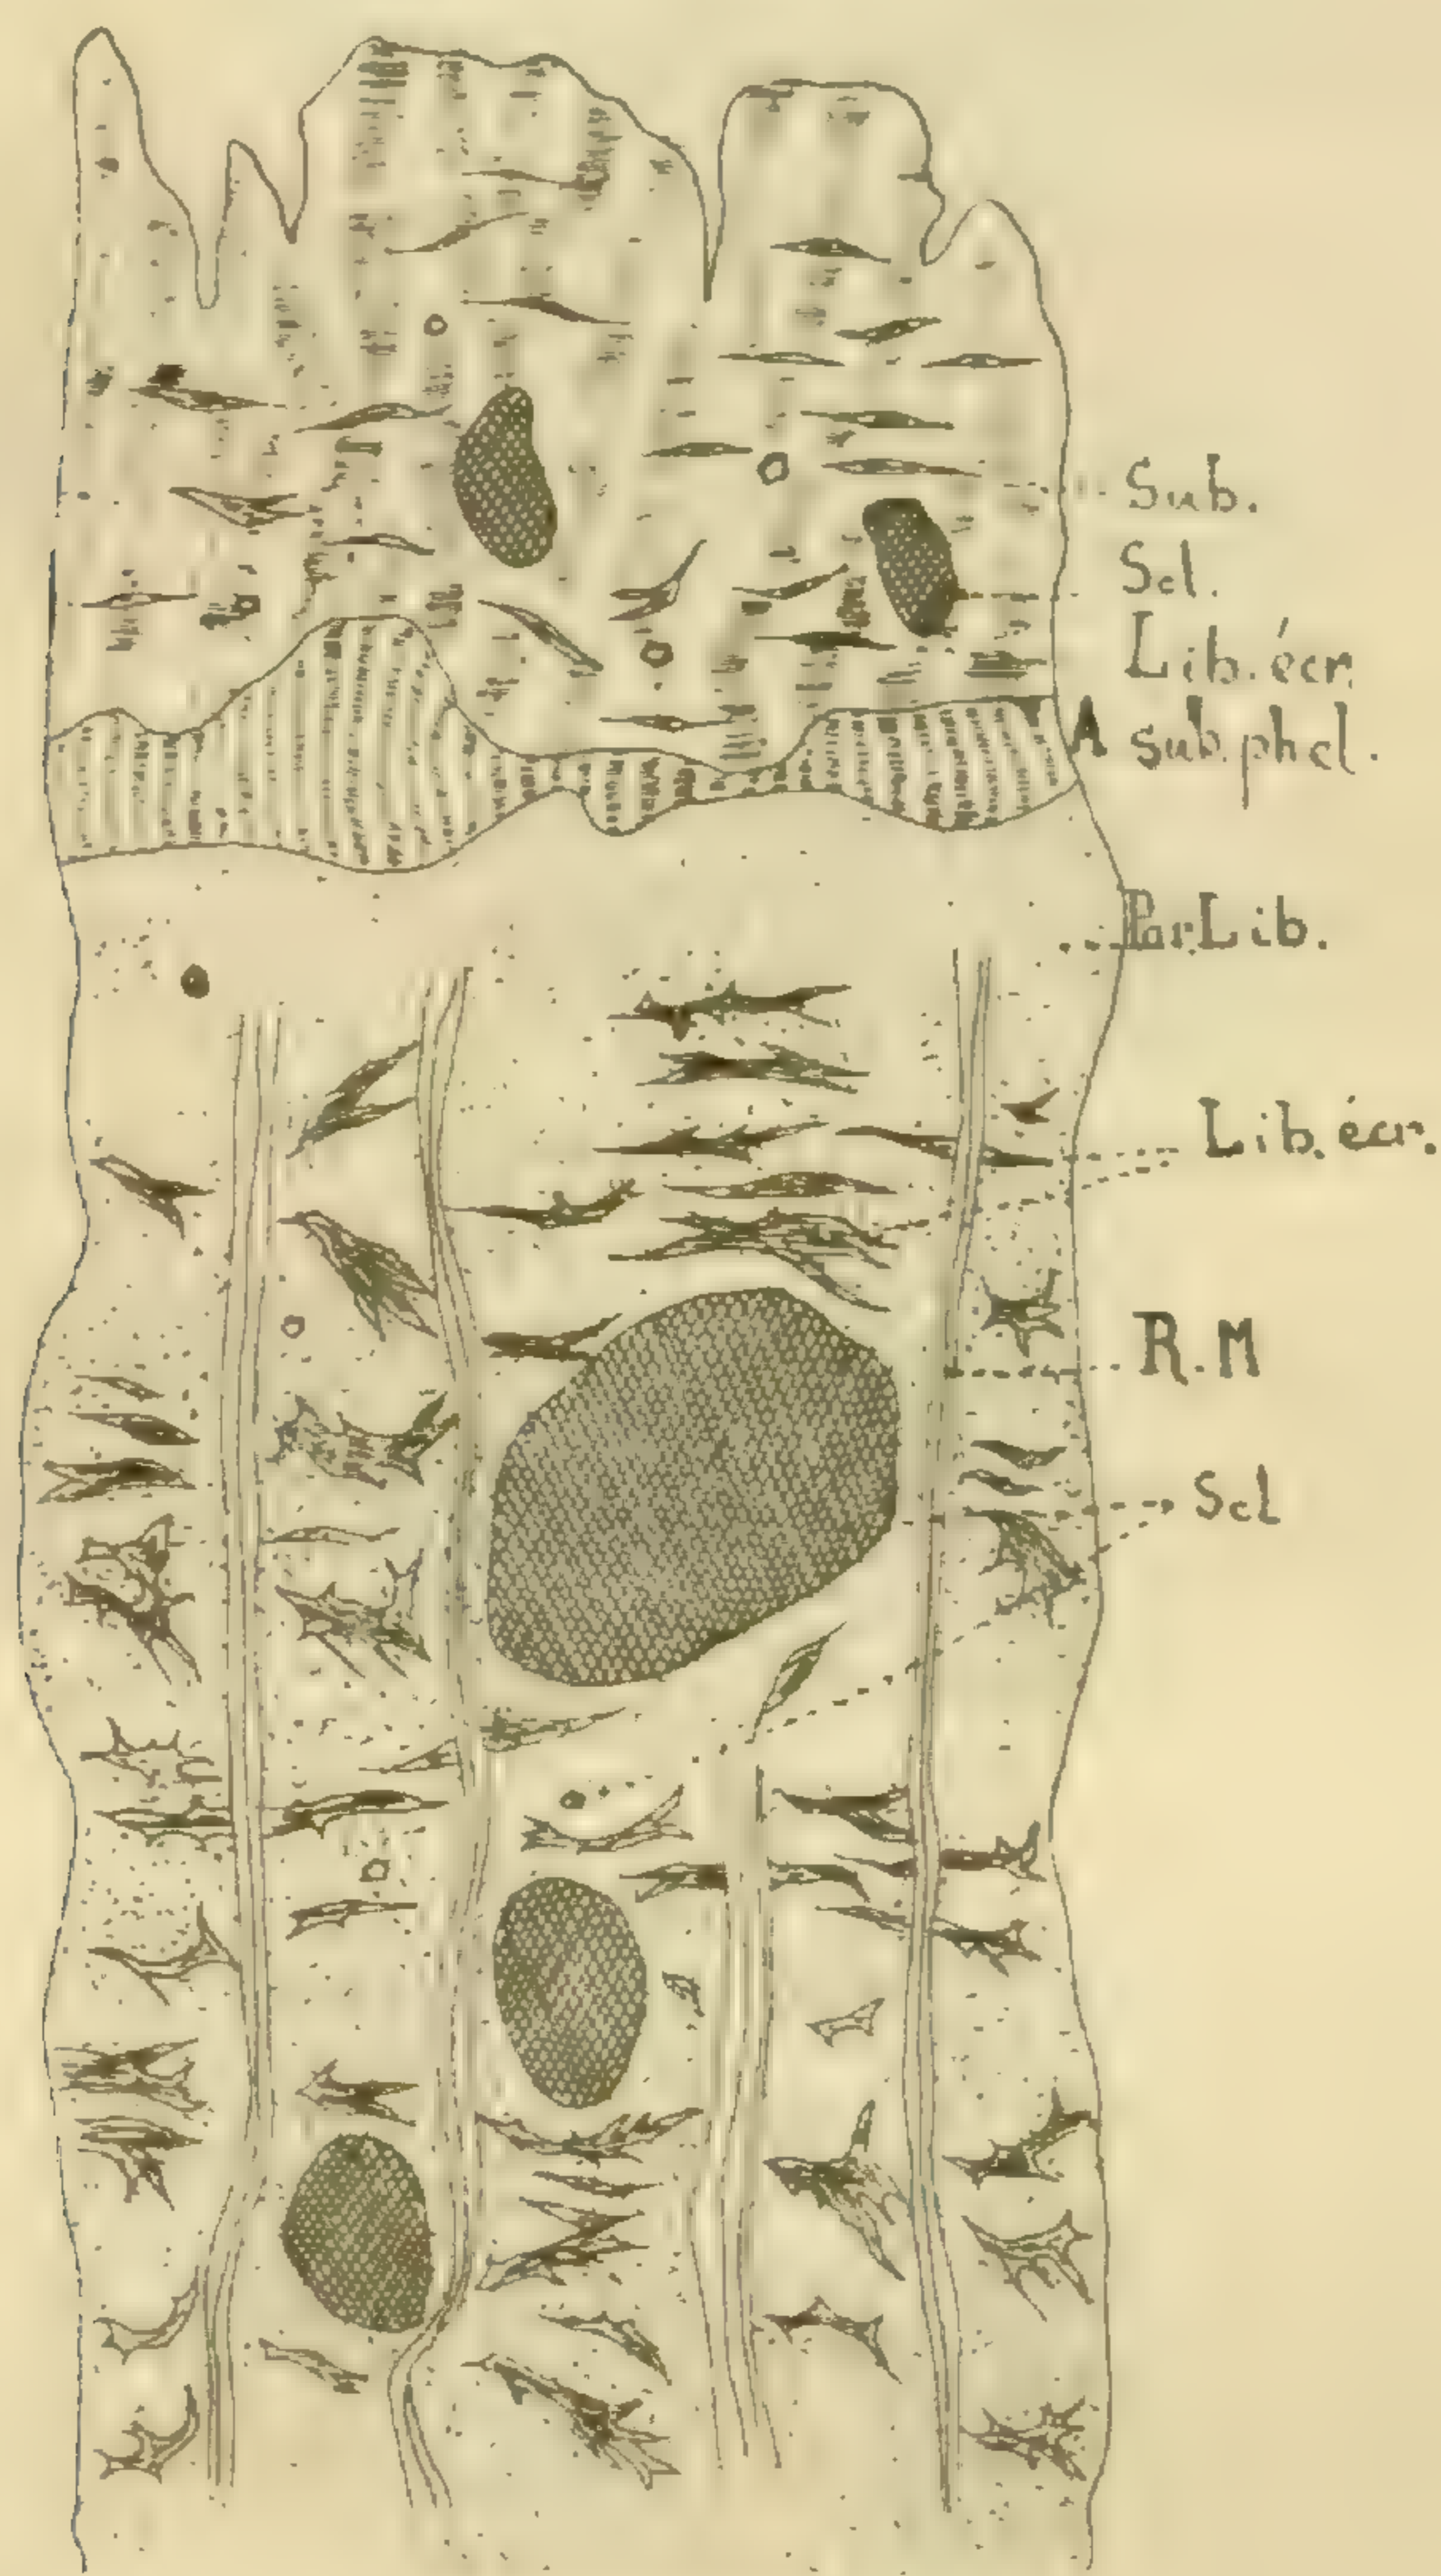 Sub.
Scl.
Lib. écr.
A sub. phel.
Par. Lib.
Lib. écr.
R. M
Scl